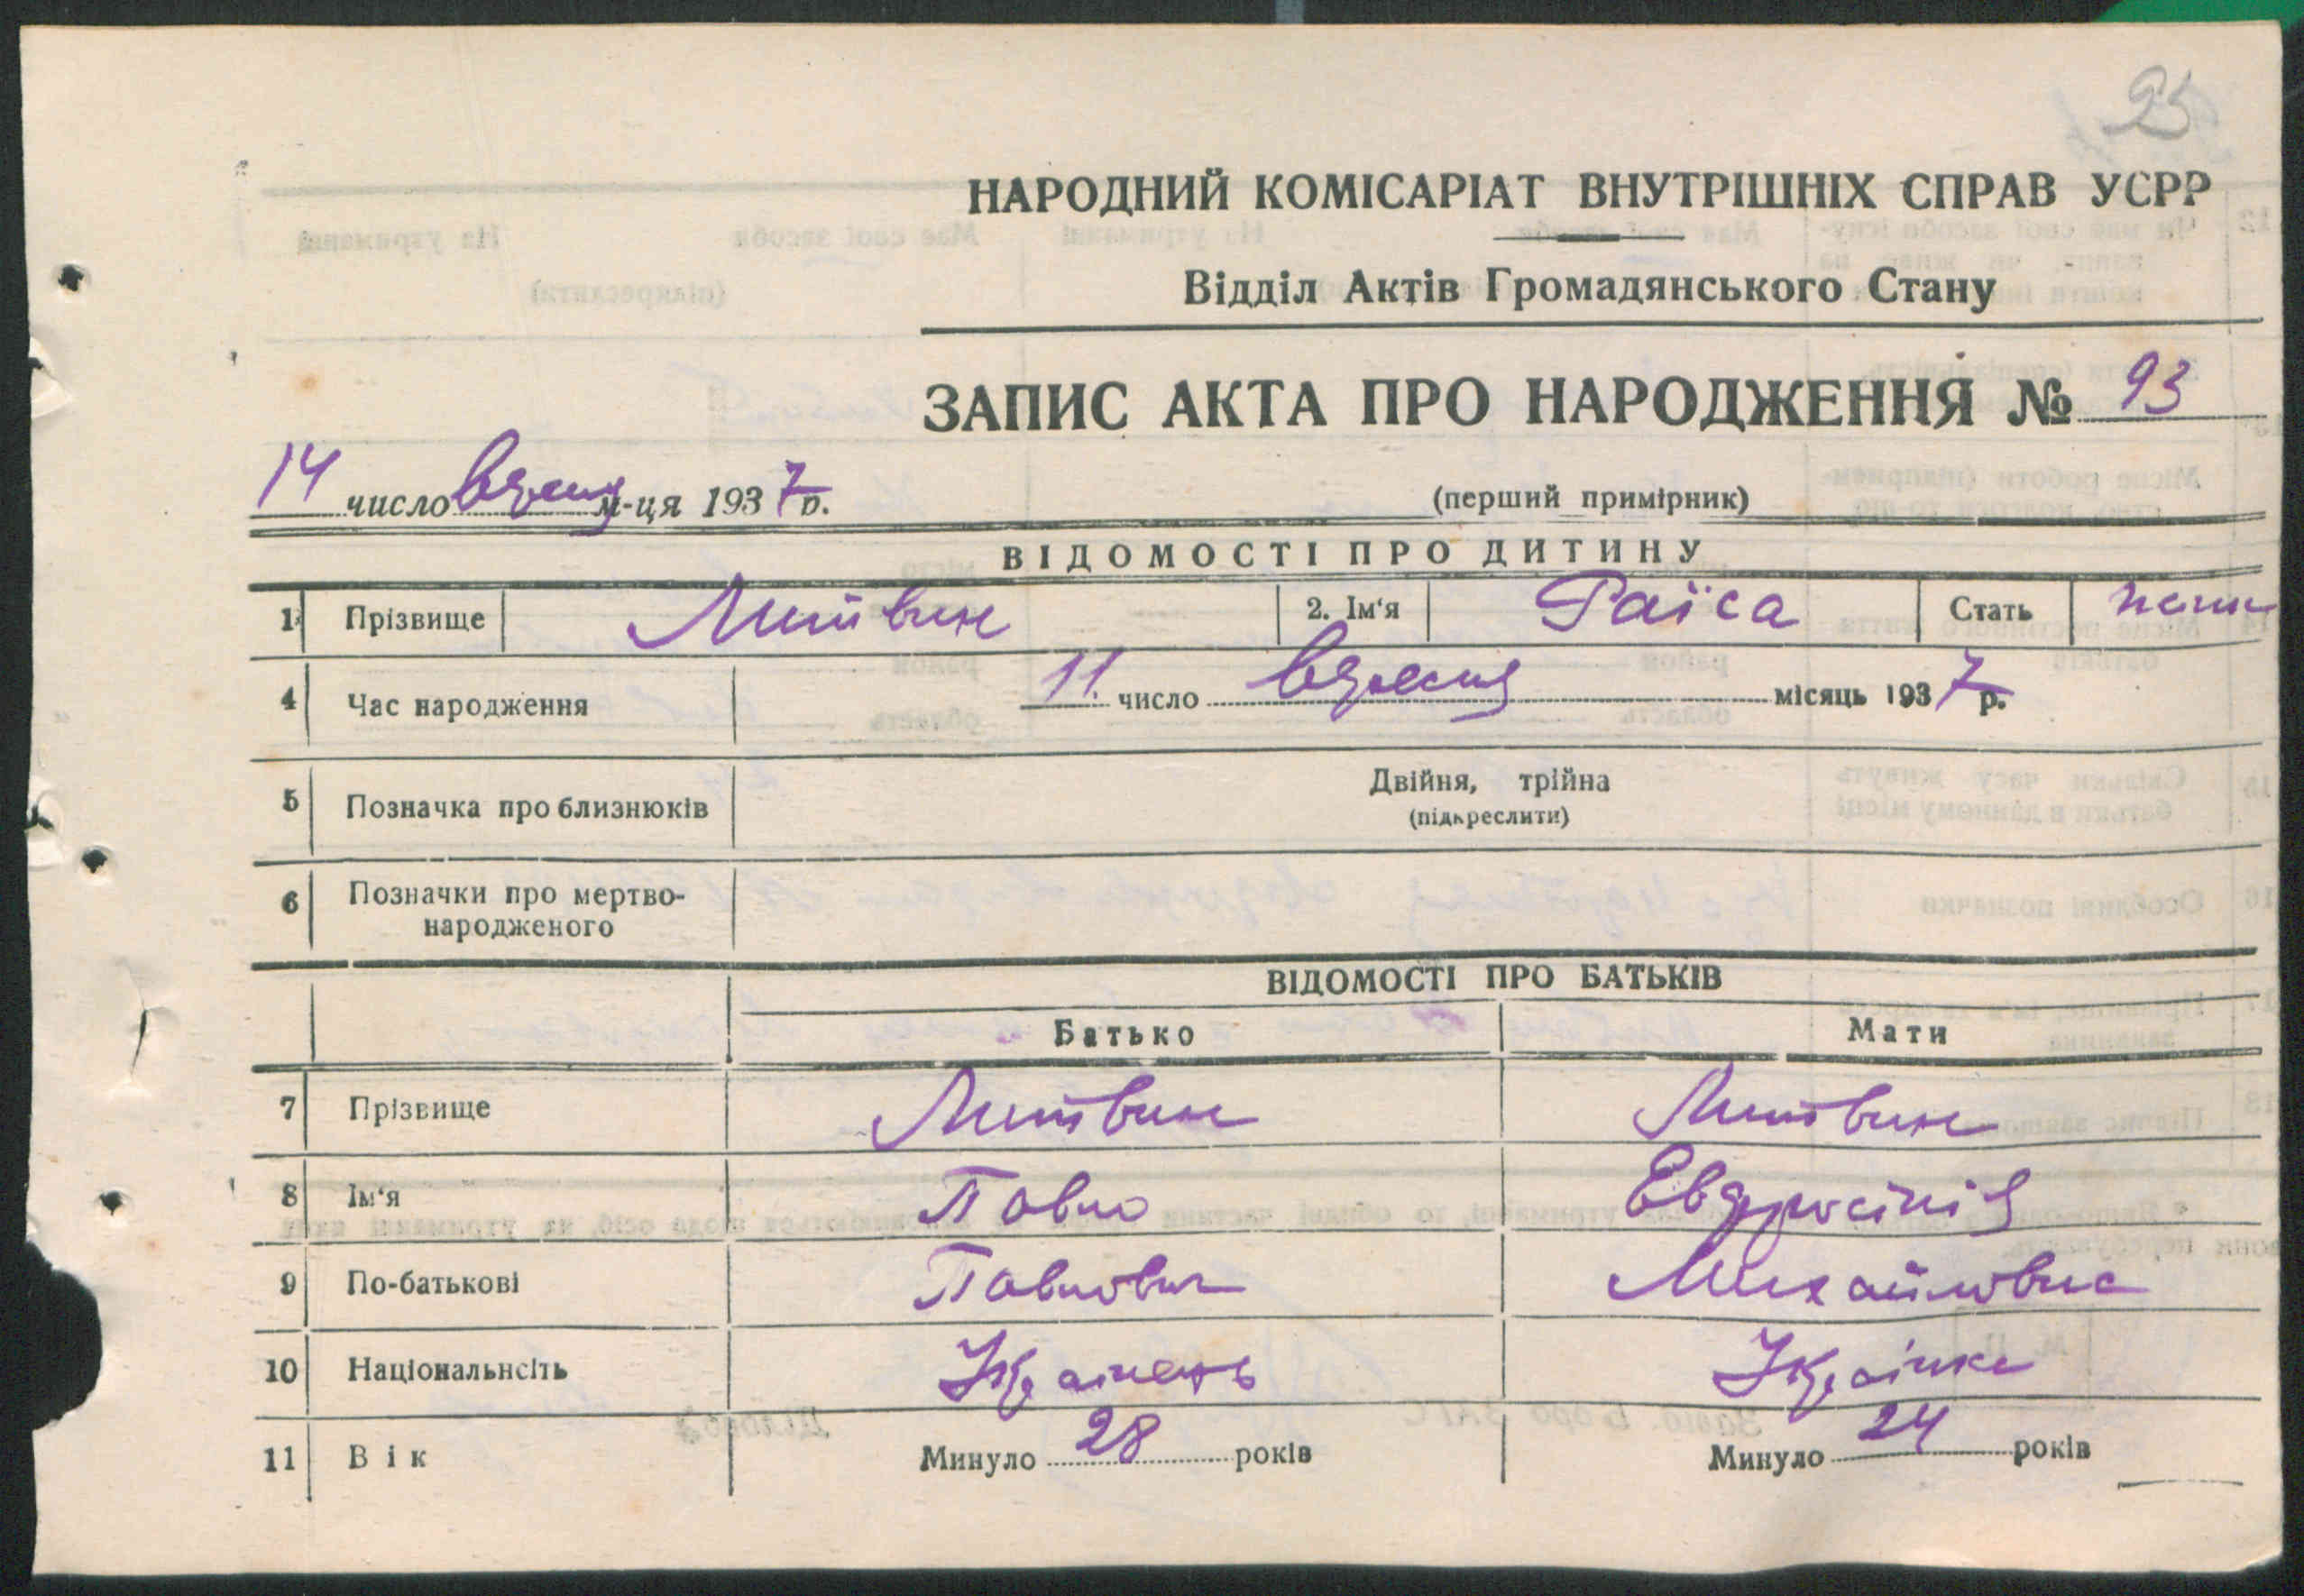 25
НАРОДНИЙ КОМІСАРІАТ ВНУТРІШНІХ СПРАВ УСРР
Відділ Актів Громадянського Стану
ЗАПИС АКТА ПРО НАРОДЖЕННЯ № 93
14 число вересня м-ця 1937 р.
(перший примірник)
ВІДОМОСТІ ПРО ДИТИНУ
1 Прізвище Литвин 2. Ім‘я Раїса Стать
4 Час народження 11 число вересня місяць 1937 р.
5 Позначка про близнюків Двійня, трійна
(підкреслити)
6 Позначки про мертво-
народженого
ВІДОМОСТІ ПРО БАТЬКІВ
Батько Мати
7 Прізвище Литвин Литвин
8 Ім‘я Павло
9 По-батькові Павлович Михайловна
10 Національнсіть Українець Українка
11 Вік Минуло 28 років Минуло 24 років